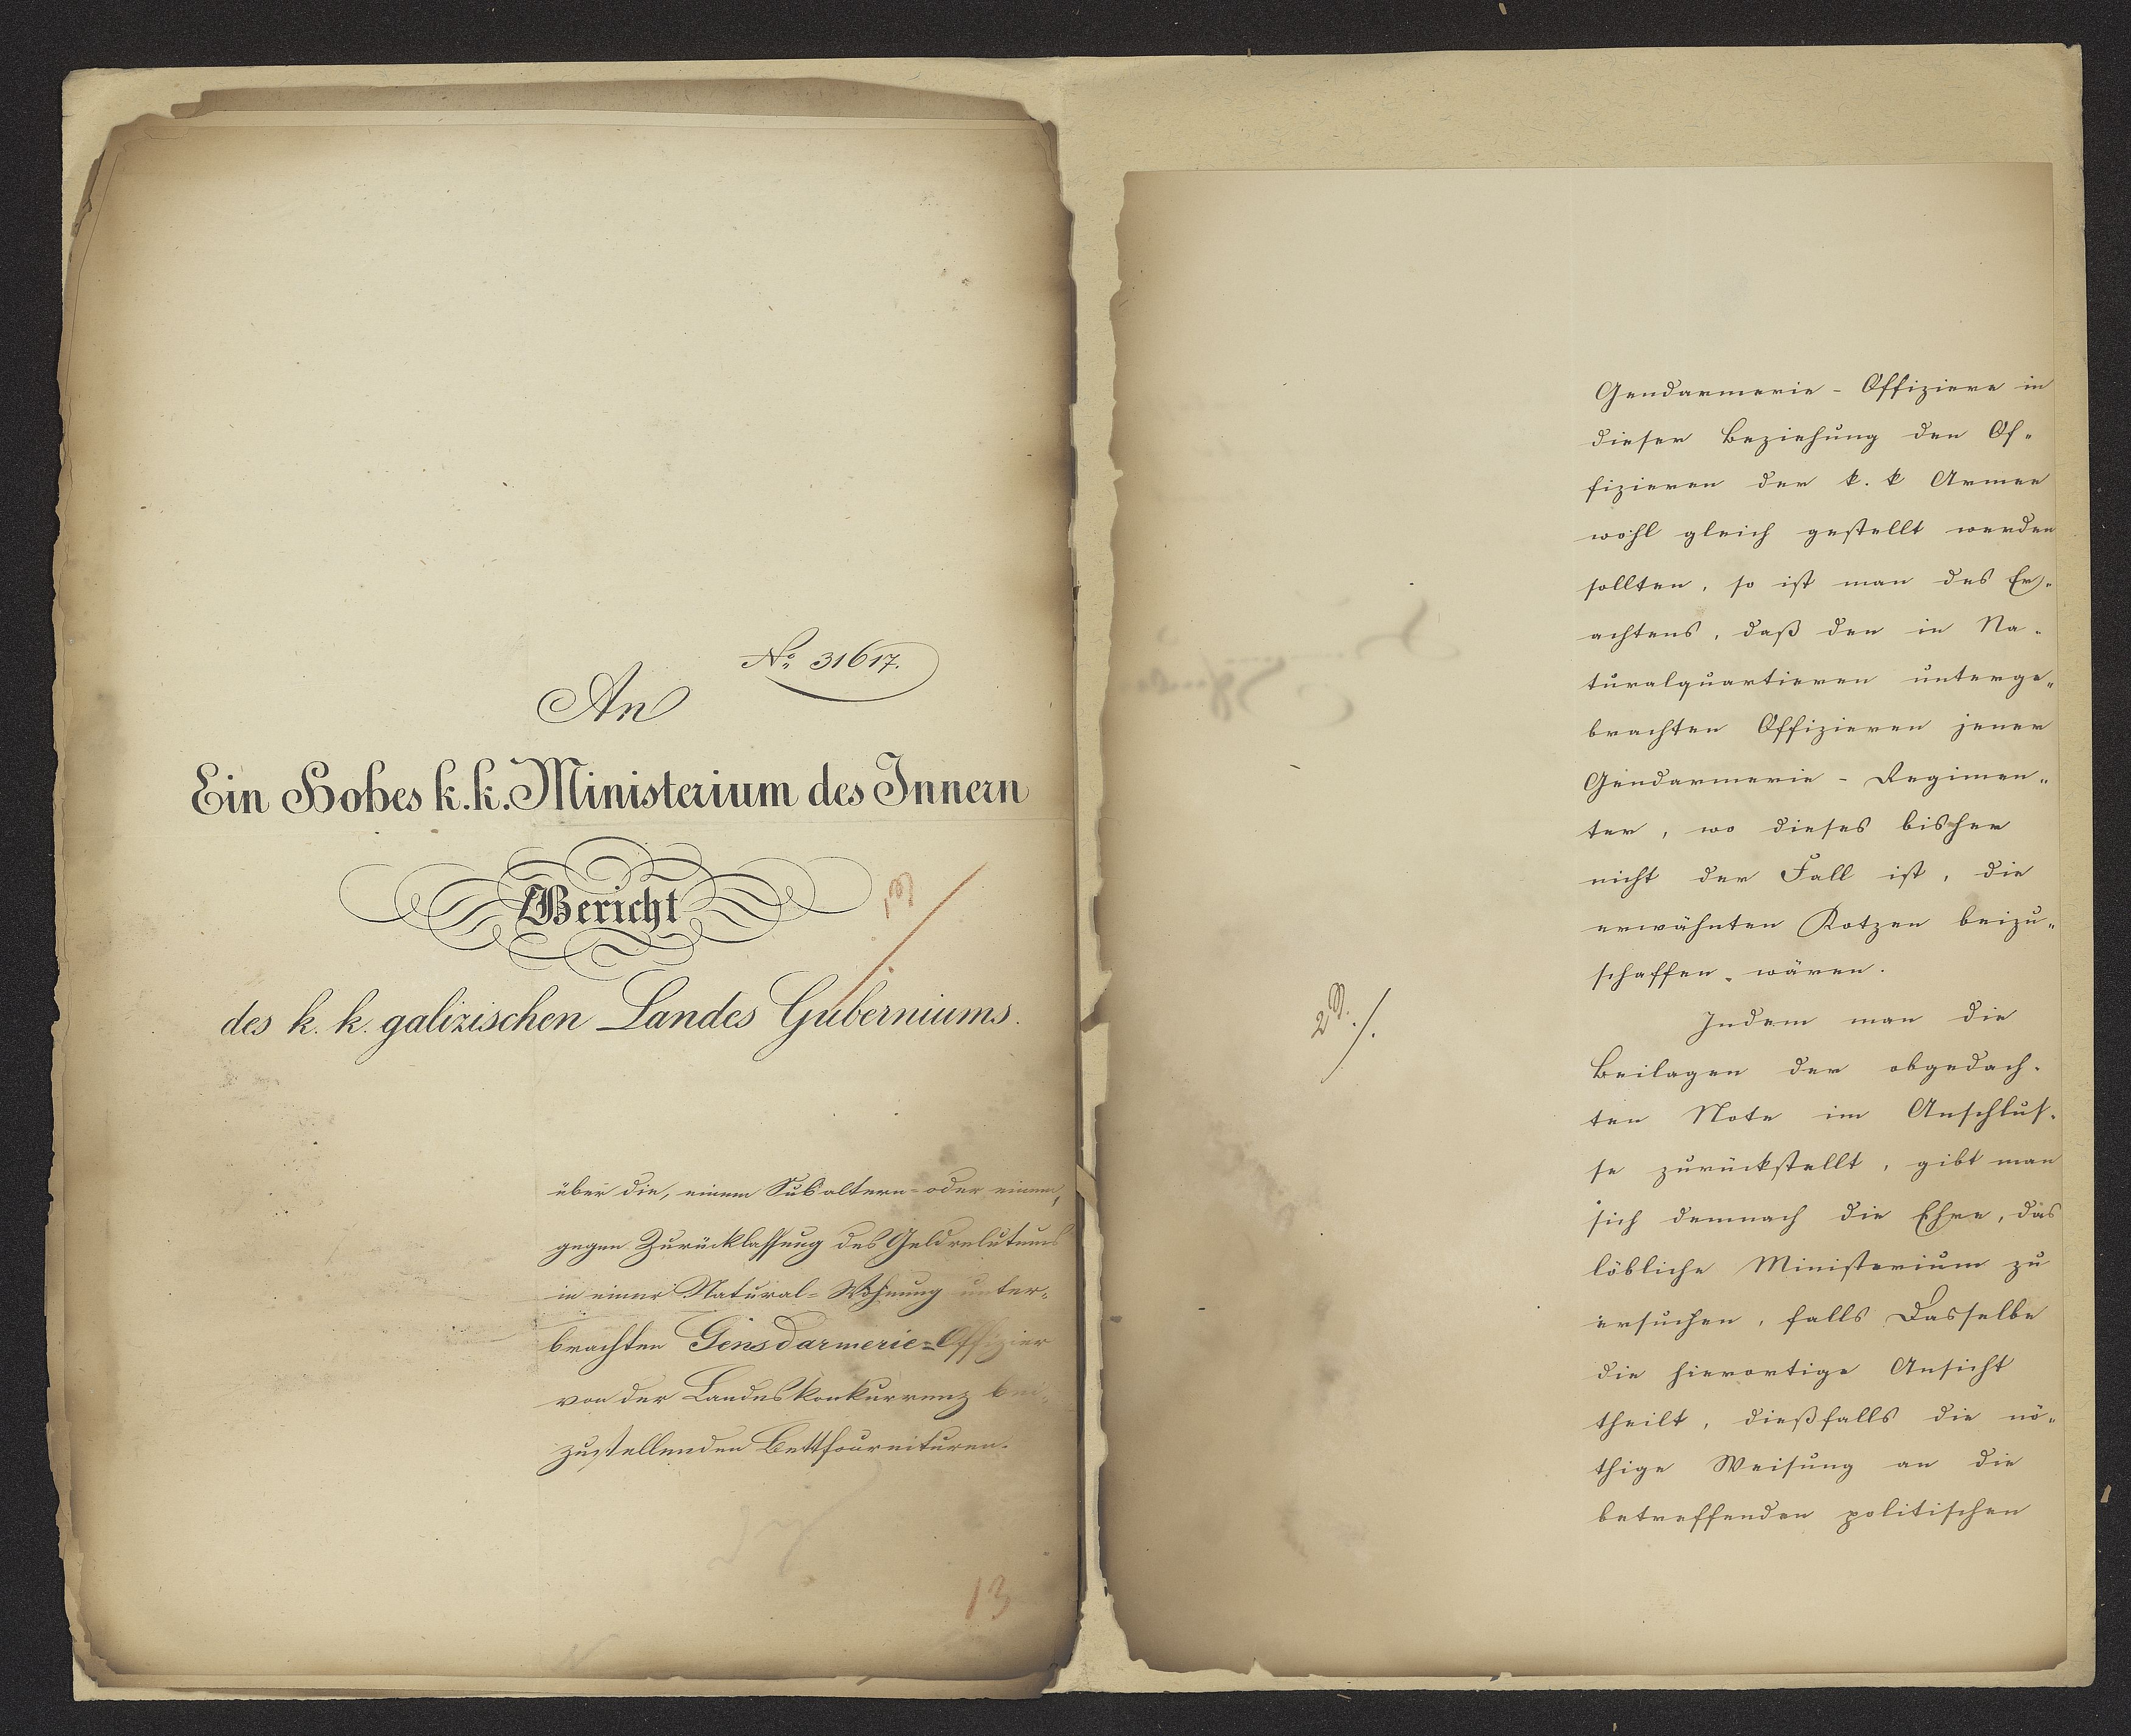 No 31617.
An
Ein Hohes k.k. Ministerium des Innern
Bericht
des k. k. galizischen Landes Guberniums.
über die, einem Subaltern- oder einem,
gegen Zurücklassung des Geldrelutums
in einer Natural-Wohnung unter-
brachten Gensdarmerie-Offizier
von der Landeskonkurrenz bei-
zustellenden Bettfournituren.
13
Gendarmerie - Offiziere in
dieser Beziehung den Of-
fizieren der k. k Armee
wohl gleich gestellt werden
sollten, so ist man des Er-
achtens, daß den in Na-
turalquartieren unterge-
brachten Offizieren jener
Gendarmerie - Regimen-
ter, wo dieses bisher
nicht der Fall ist, die
erwähnten Kotzen beizu-
schaffen wären.
Indem man die
Beilagen der obgedach-
ten Note im Anschlus-
se zurückstellt, gibt man
sich demnach die Ehre, das
löbliche Ministerium zu
ersuchen, falls Dasselbe
die hierortige Ansicht
theilt, dießfalls die nö-
thige Weisung an die
betreffenden politischen